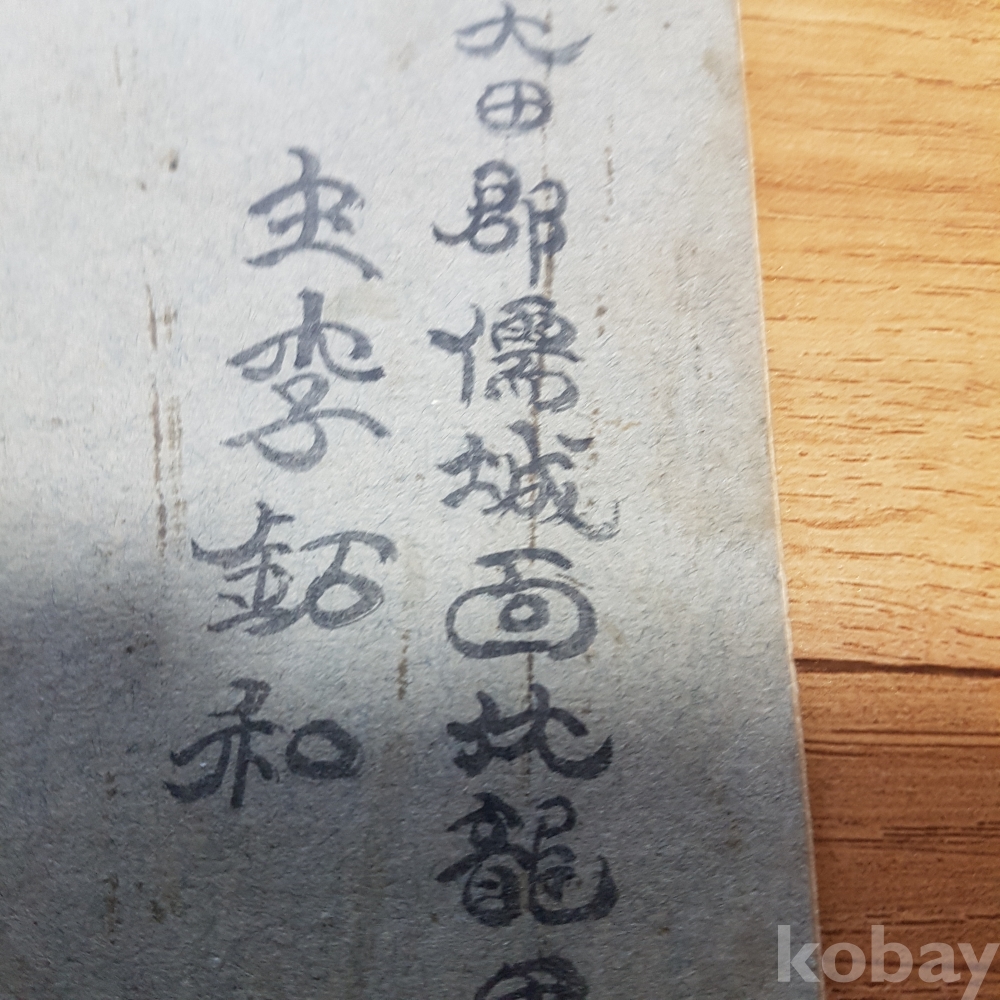 大田郡儒城面北龍
主李鉐和
kobay